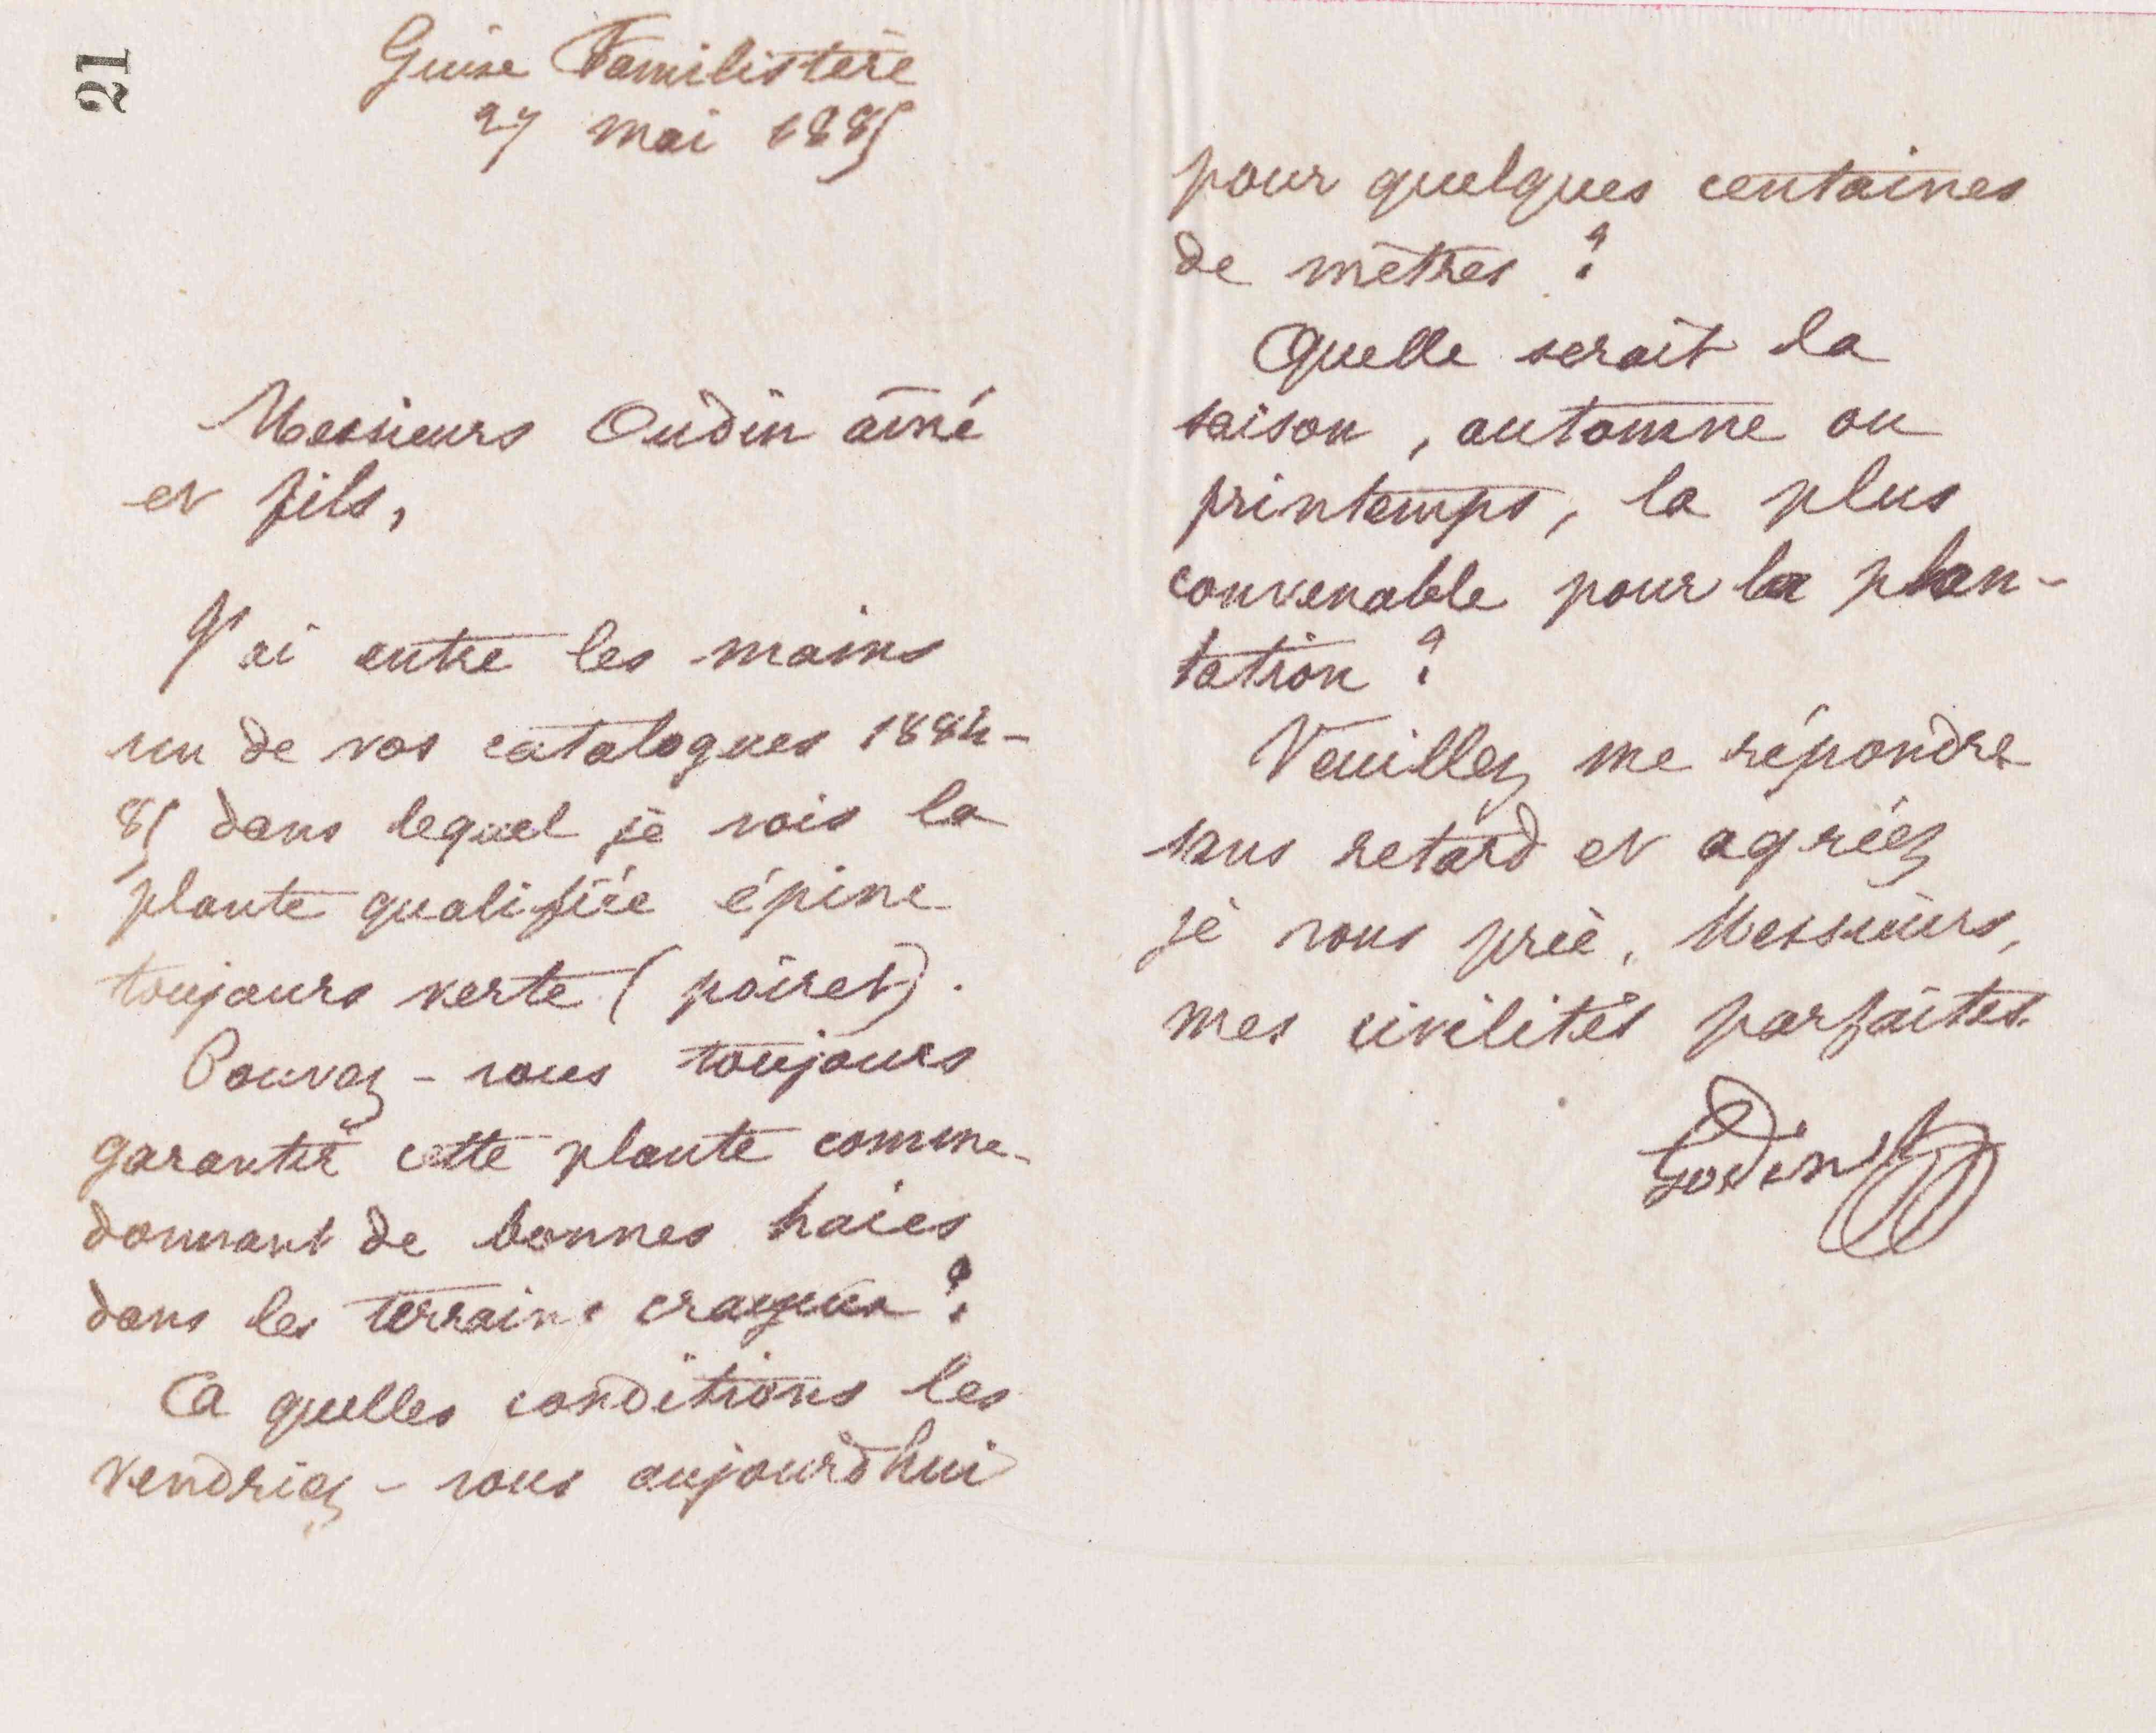 21
Guise Familistère
27 mai 1885
Messieurs Oudin aîné
et fils,
J'ai entre les mains
un de vos catalogues 1884-
85 dans lequel je vois la
plante qualifiée épine
toujours verte (poiret).
Pouvez-vous toujours
garantir cette plante comme
donnant de bonnes haies
dans les terrains crayeux ?
A quelles conditions les
vendriez-vous aujourd'hui
pour quelques centaines
de mètres ?
Quelle serait la
saison, automne ou
printemps, la plus
convenable pour la plan-
tation ?
Veuillez me répondre
sans retard et agréez
je vous prie, Messieurs,
mes civilités parfaites.
Godin